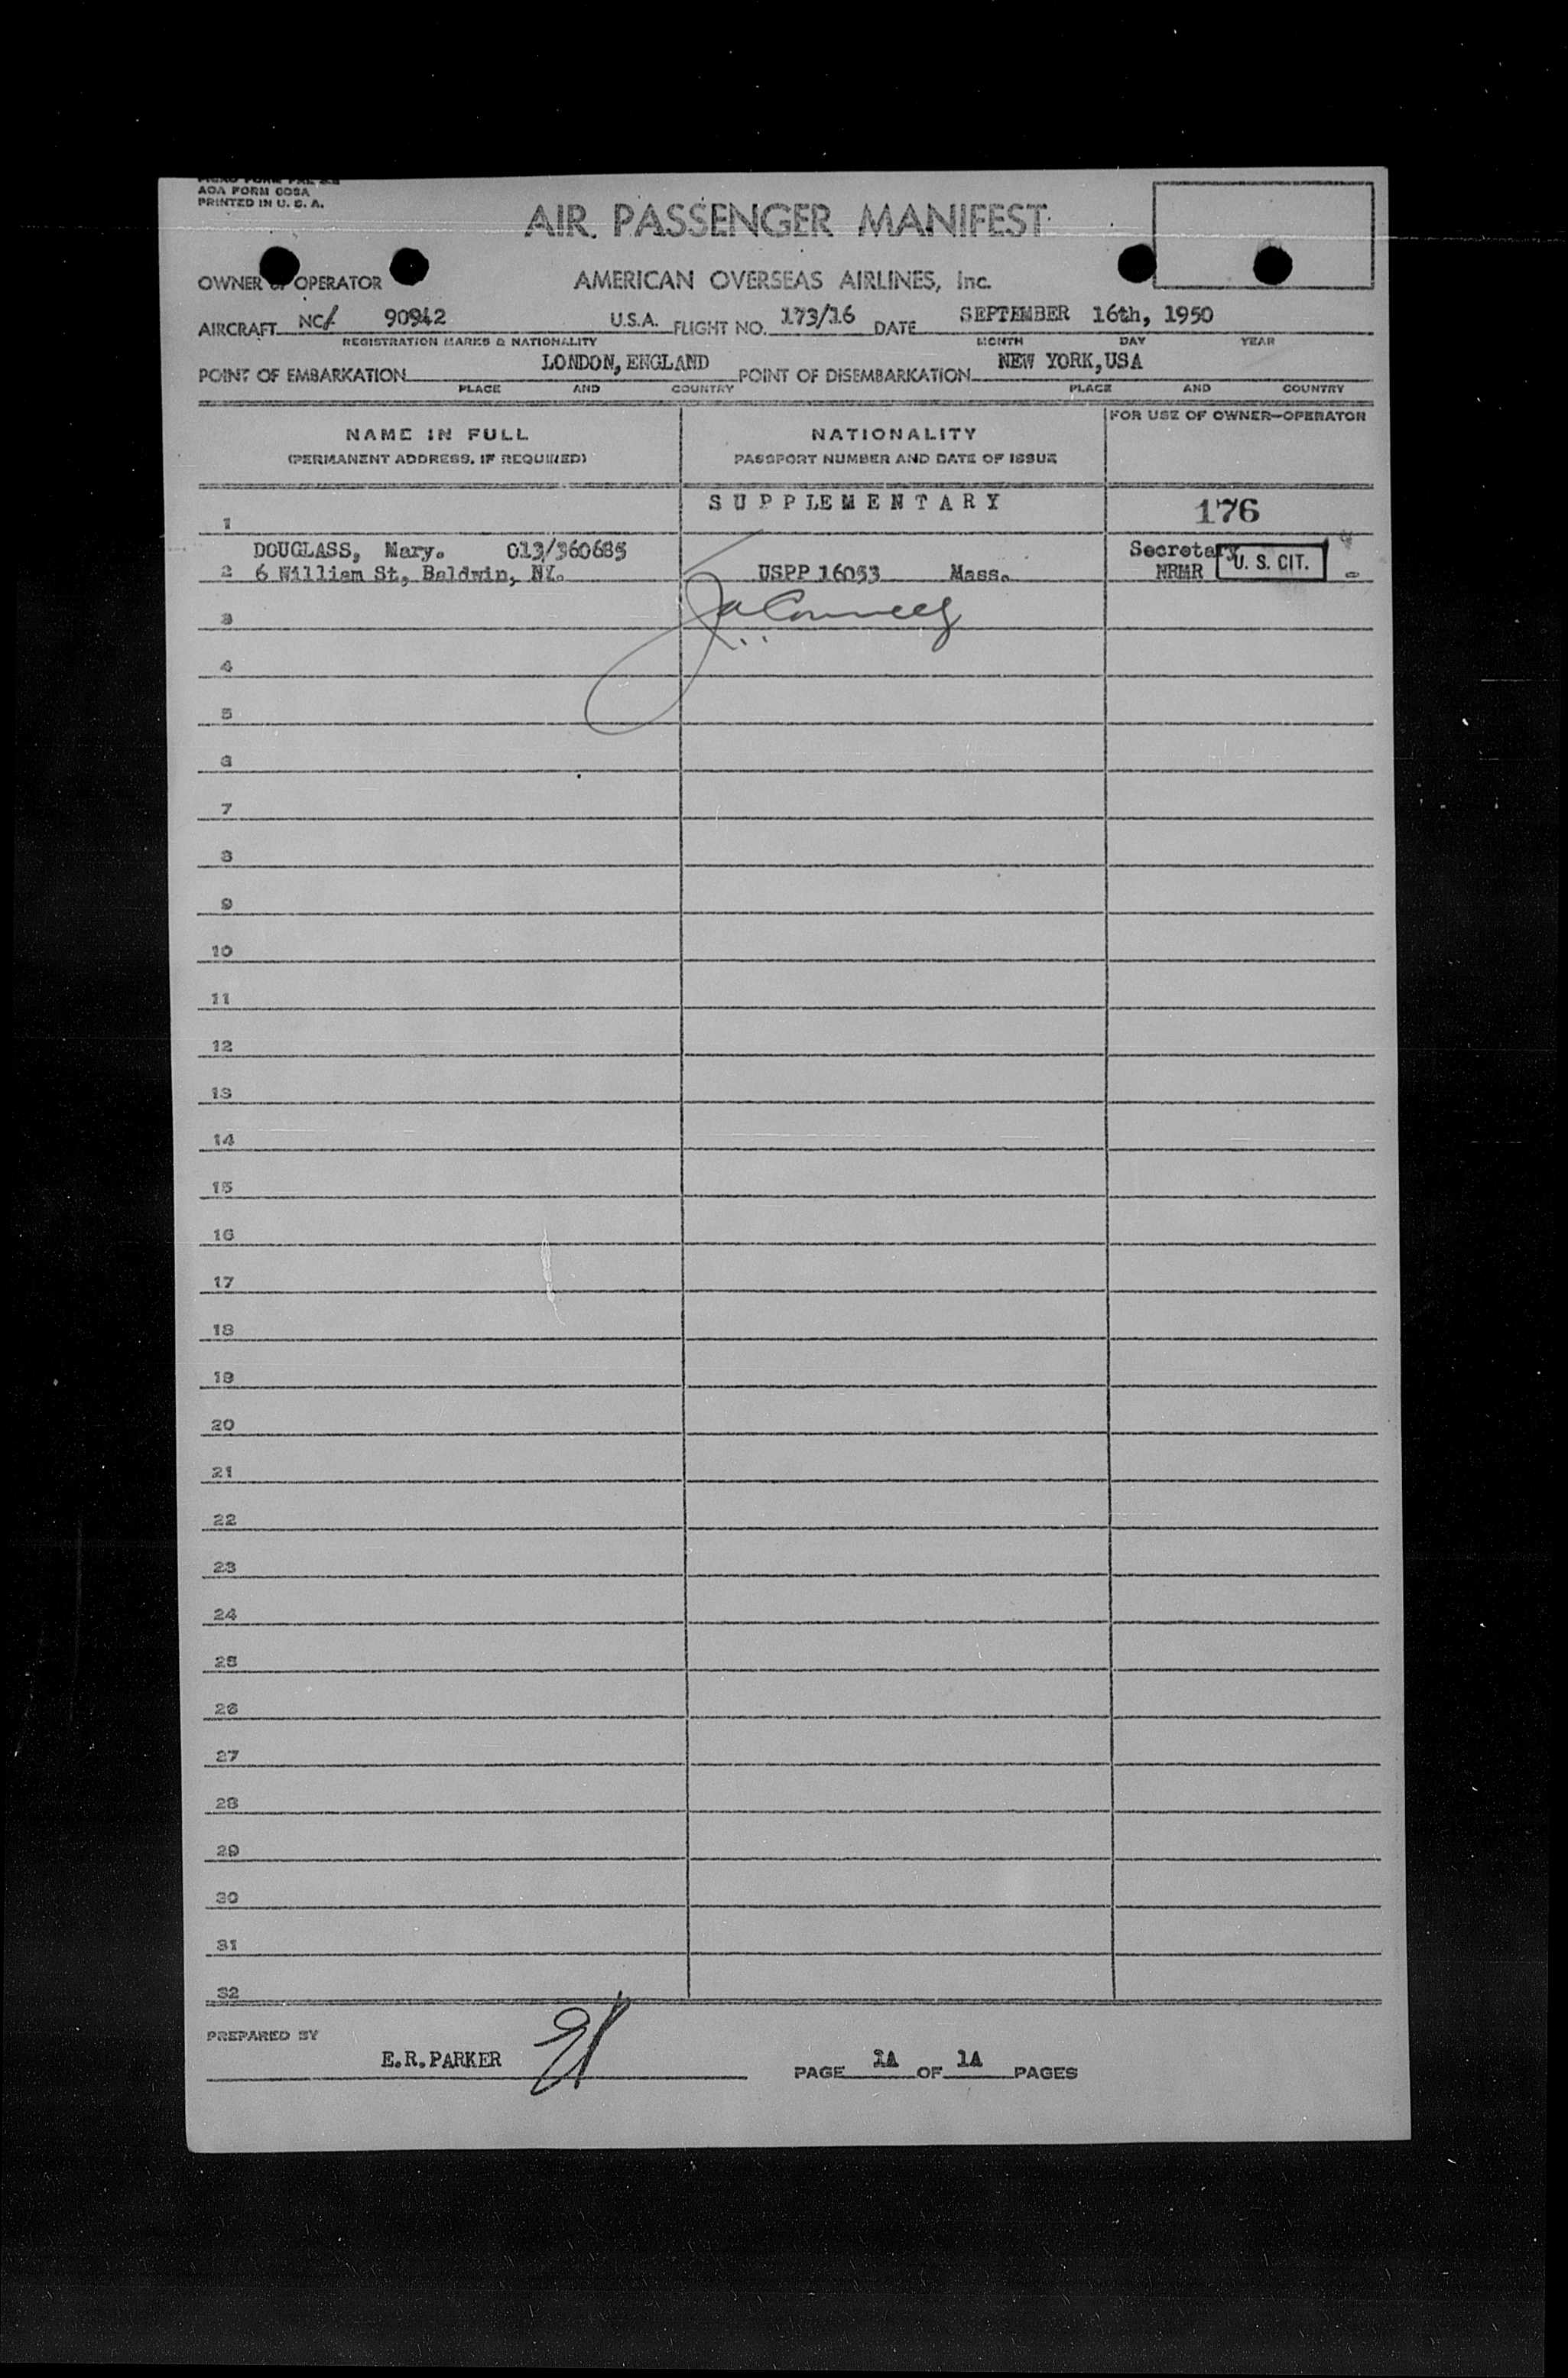 AOA FORM
PRINTED IN U. S. A.
AIR PASSENGER MANIFEST
OWNER OPERATOR AMERICAN OVERSEAS AIRLINES, Inc.
AIRCRAFT NC 90942 U.S.A. FLIGHT NO. 173/16 DATE SEPTEMBER 16th, 1950
REGISTRATION MARKS & NATIONALITY MONTH DAY YEAR
POINT OF EMBARKATION LONDON, ENGLAND POINT OF DISEMBARKATION NEW YORK, USA
PLACE AND COUNTRY PLACE AND COUNTRY
NAME IN FULL NATIONALITY FOR USE OF OWNER-OPERATOR
(PERMANENT ADDRESS, IF REQUIRED) PASSPORT NUMBER AND DATE OF ISSUE
1 SUPPLEMENTARY 176
DOUGLASS, Mary. 013/360685 Secretary
2 6 William St, Baldwin, NY. USPP 16053 Mass. NRMR U. S. CIT.
3
4
5
6
7
8
9
10
11
12
13
14
15
16
17
18
19
20
21
22
23
24
25
26
27
28
29
30
31
32
PREPARED BY
E.R.PARKER PAGE 1A OF 1A PAGES